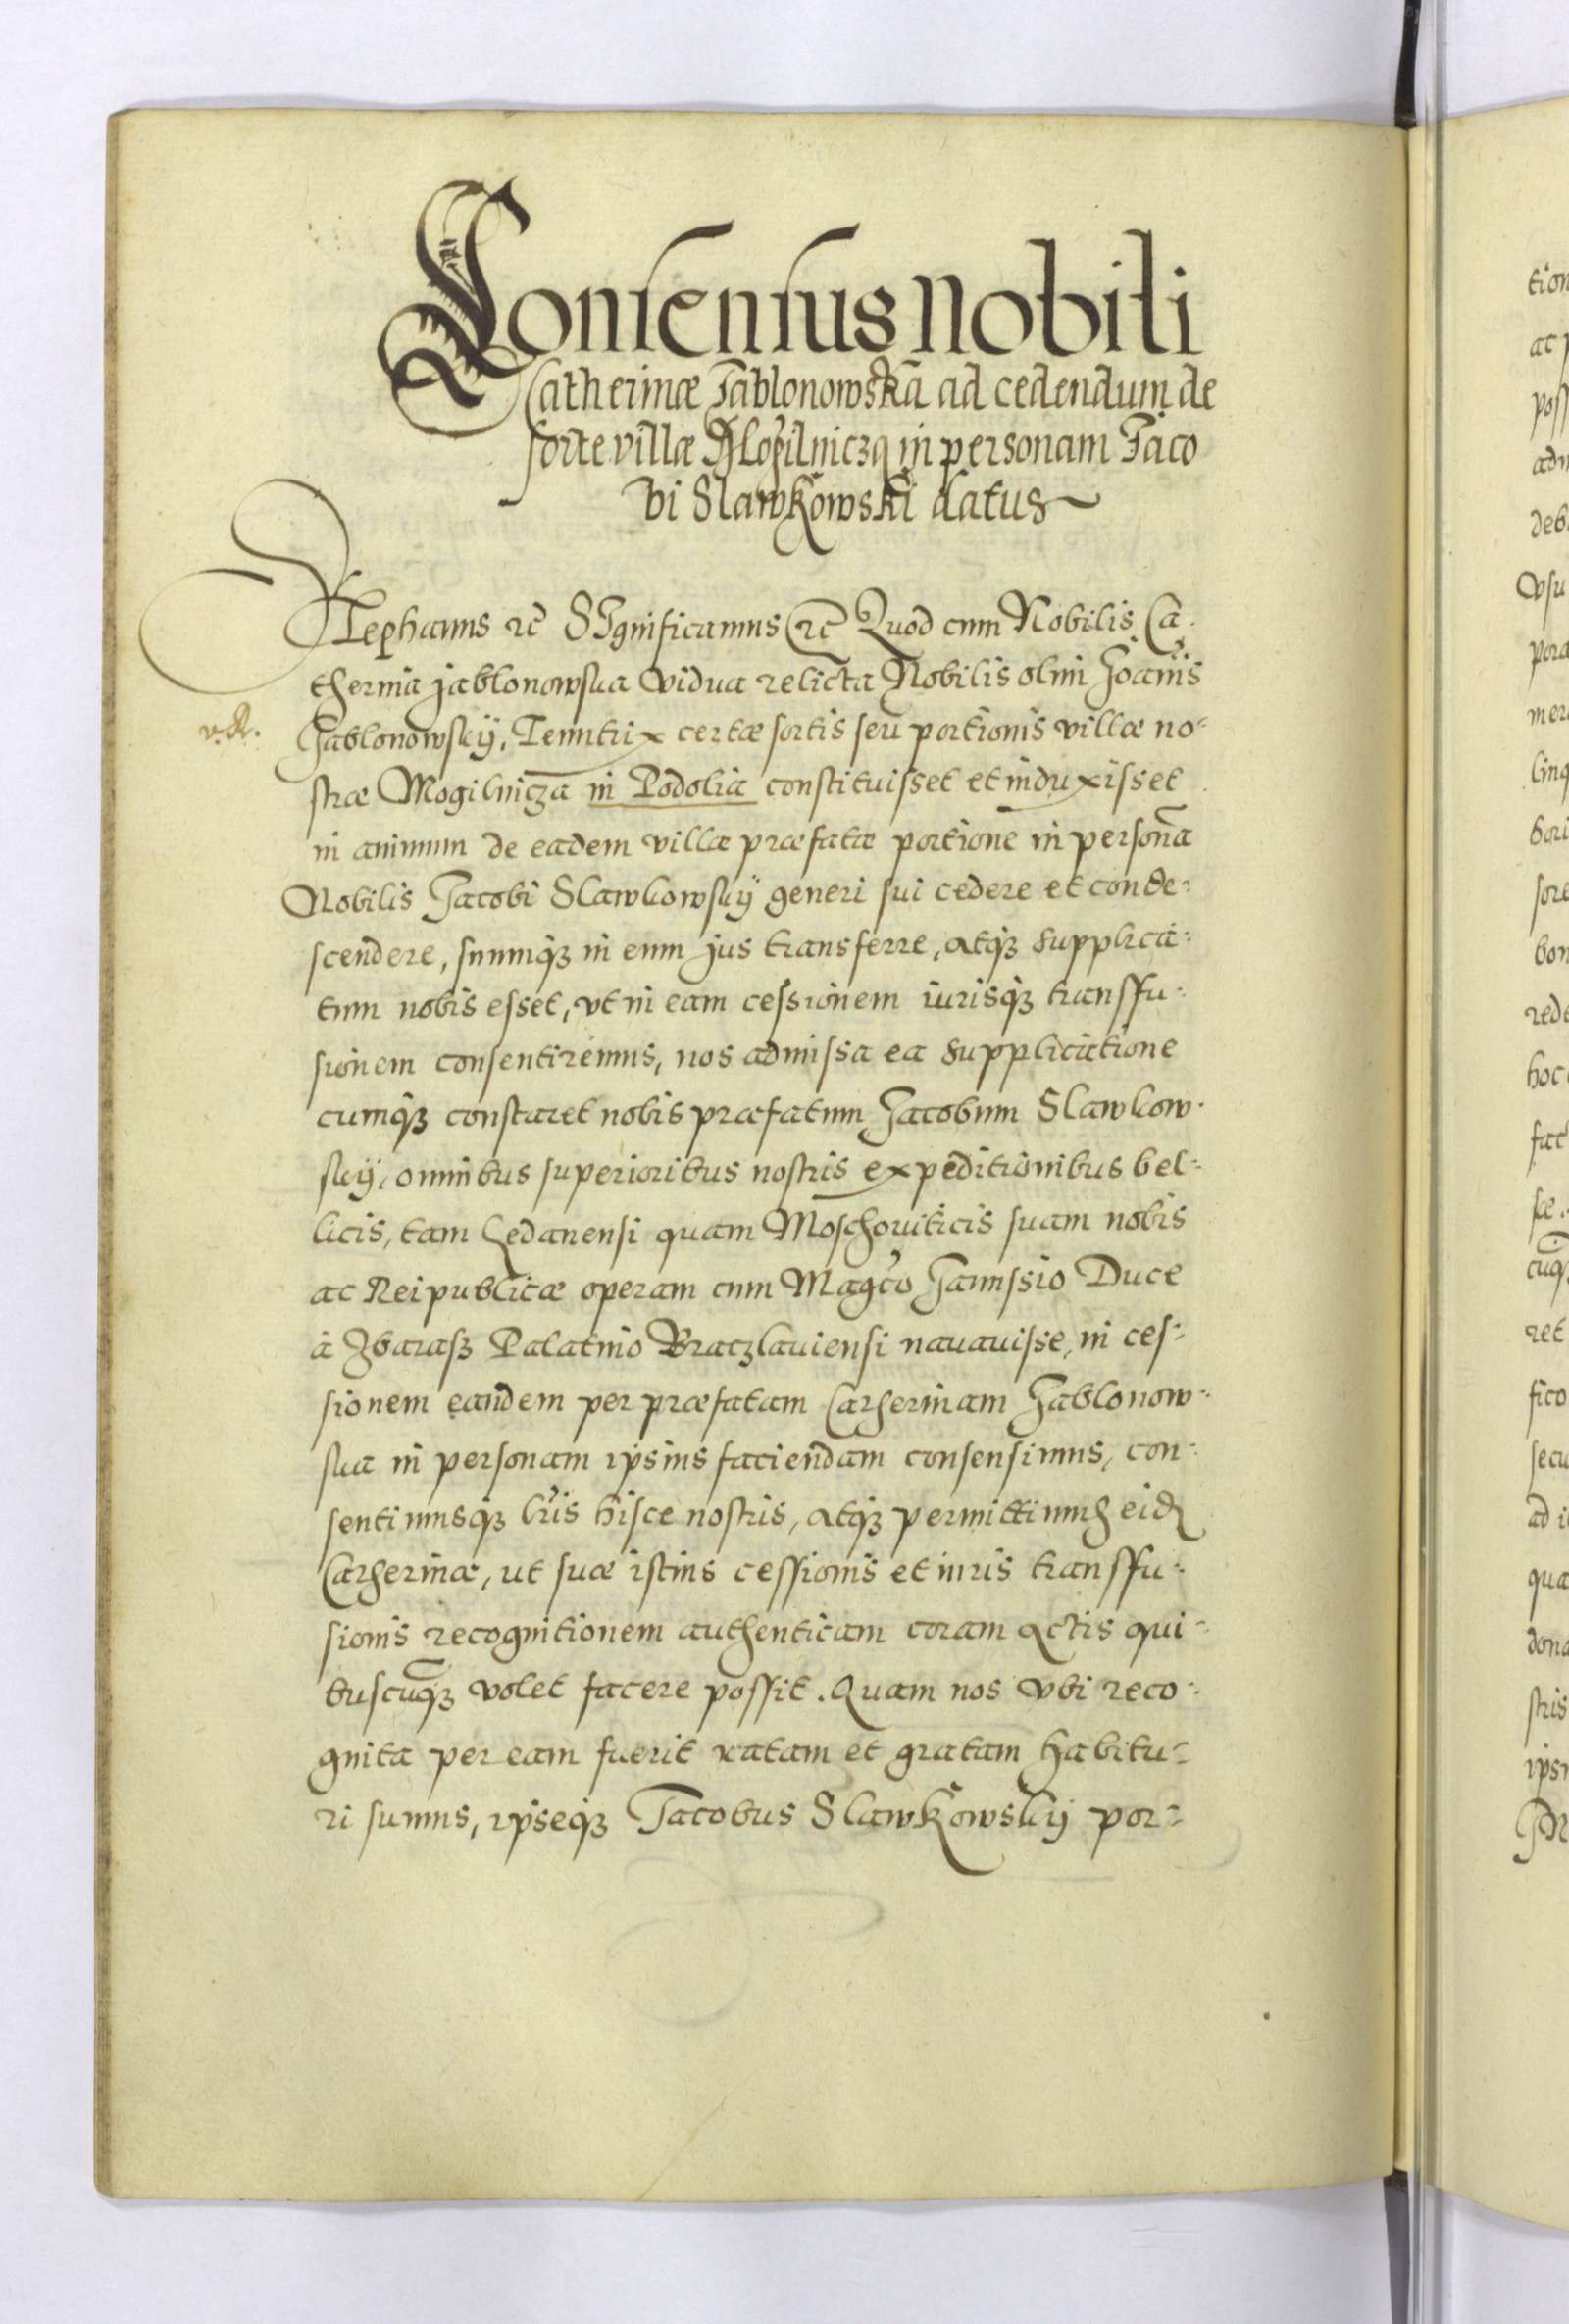 Consensus nobili
Catherinæ Jablonowskā ad cedendum de
sorte villæ Mogilnicza in personam Jaco
bi Slawkowski datus
Stephanus ꝛc̄ Significamus ꝛc̄ Quod cum Nobilis Ca-
therina jablonowska vidua relicta Nobilis olim Joañis
v. R.
Jablonowskij, Tenutrix certæ sortis seu portionis villæ no-
stræ Mogilnicza in Podolia constituisset et induxisset
in animum de eadem villæ præfatæ portione in personā
Nobilis Jacobi Slawkowskij generi sui cedere et conde-
scendere, suumqȝ in eum jus transferre, atqȝ supplica-
tum nobis esset, vt in eam cessionem iurisqȝ transffu-
sionem consentiremus, nos admissa ea supplicatione
cumqȝ constaret nobis præfatum Jacobum Slawkow-
skij, omnibus superioribus nostris expeditionibus bel-
licis, tam Gedanensi quam Moschouiticis suam nobis
ac Reipublicæ operam cum Magco Janussio Duce
à Zbarasz Palatino Bratzlauiensi nauauisse, in ces-
sionem eandem per præfatam Catherinam Jablonow-
ska in personam ipsius faciendam consensimus, con-
sentimusqȝ lris hisce nostris, atqȝ permittimus eid
Catherinæ, ut suæ istius cessionis et iuris transffu-
sionis recognitionem authenticam coram actis qui-
buscūqȝ volet facere possit. Quam nos vbi reco-
gnita per eam fuerit ratam et gratam habitu-
ri sumus, ipseqȝ Jacobus Slawkowskij por-
tion
ac p
poss
adm
deb
vsu
pora
mer
linq
bori
sore
bon
rede
hoc
fac
scæ.
cuq
ret
fico
secu
ad i
qua
dona
stris
ipsi